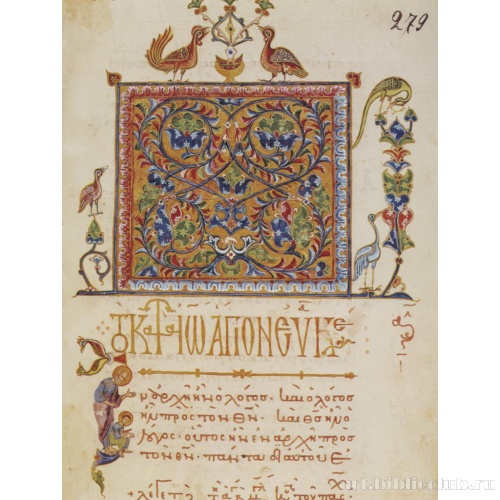 279
ΤΟ ΚΤ ΙΩ ΑΓΙΟΝ ΕΥ
Ἐν ἀρχῆ ἦν ὁ λόγος· καὶ ὁ λόγος
ἦν πρὸς τὸν θν· καὶ θς ἦν ὁ
λόγος· οὗτος ἦν ἐν ἀρχῆ πρὸς
τὸν θν· πάντα δι αὐτοῦ ἐ
art.biblioclub.ru